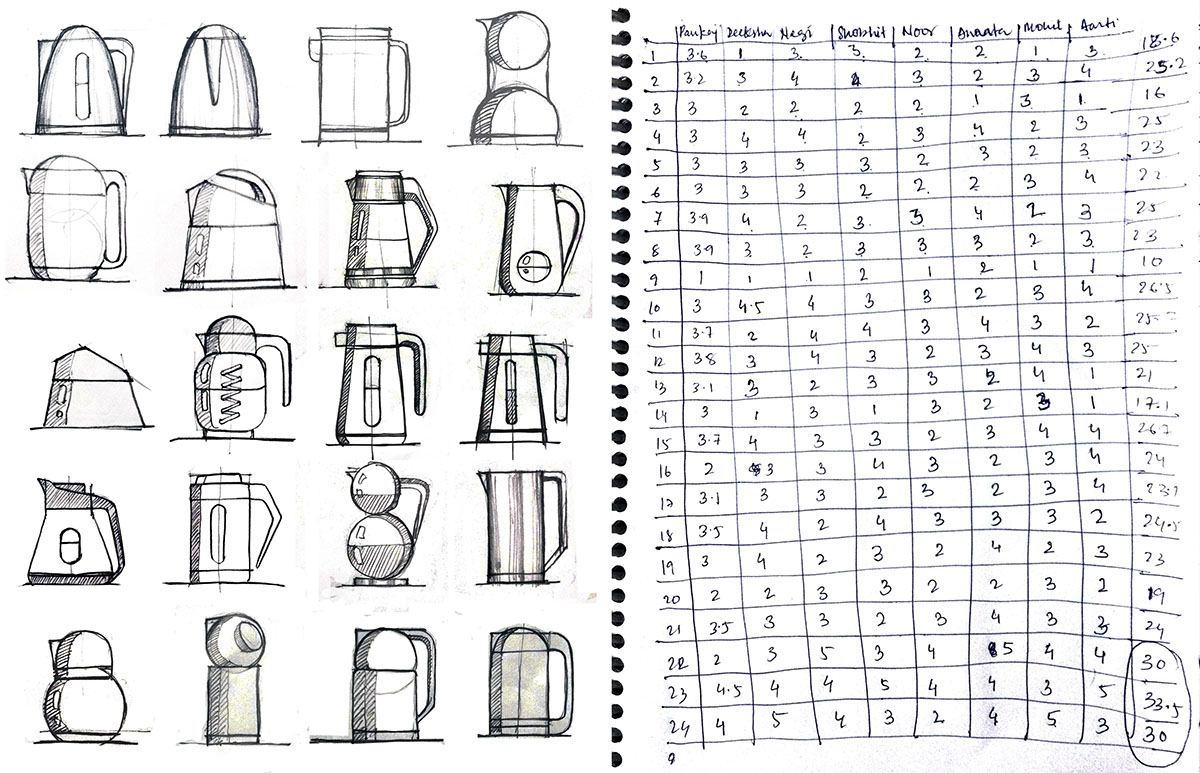 Pankaj Deeksha Negi Shobhit Noor Ananta Mohit Aarti
1 3.6 1 3 3 2 2 1 3 18.6
2 3.2 3 4 4 3 2 3 4 25.2
3 3 2 2 2 2 1 3 1 16
4 3 4 4 2 3 4 2 3 25
5 3 3 3 3 2 3 2 3 23
6 3 3 3 2 2 2 3 4 22
7 3.9 4 2 3 3 4 2 3 25
8 3.9 3 2 3 3 3 2 3 23
9 1 1 1 2 1 2 1 1 10
10 3 4.5 4 3 3 2 3 4 26.5
11 3.7 2 4 4 3 4 3 2
12 3.8 3 4 3 2 3 4 3 25
13 3.1 3 2 3 3 2 4 1 21
14 3 1 3 1 3 2 3 1 17.1
15 3.7 4 3 3 2 3 4 4 26.7
16 2 3 3 4 3 2 3 4 24
17 3.1 3 3 2 3 2 3 4 23.1
18 3.5 4 2 4 3 3 3 2 24.5
19 3 4 2 3 2 4 2 3 23
20 2 2 3 3 2 2 3 2 19
21 3.5 3 3 2 3 4 3 3 24
22 2 3 5 3 4 5 4 4 30
23 4.5 4 4 5 4 4 3 5 33.5
24 4 5 4 3 2 4 5 3 30
9